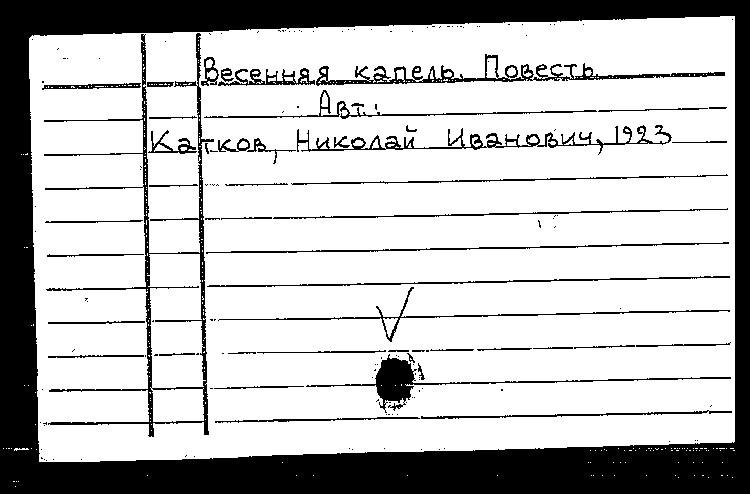 Весенняя капель. Повесть.
Авт.:
Катков, Николай Иванович, 1923